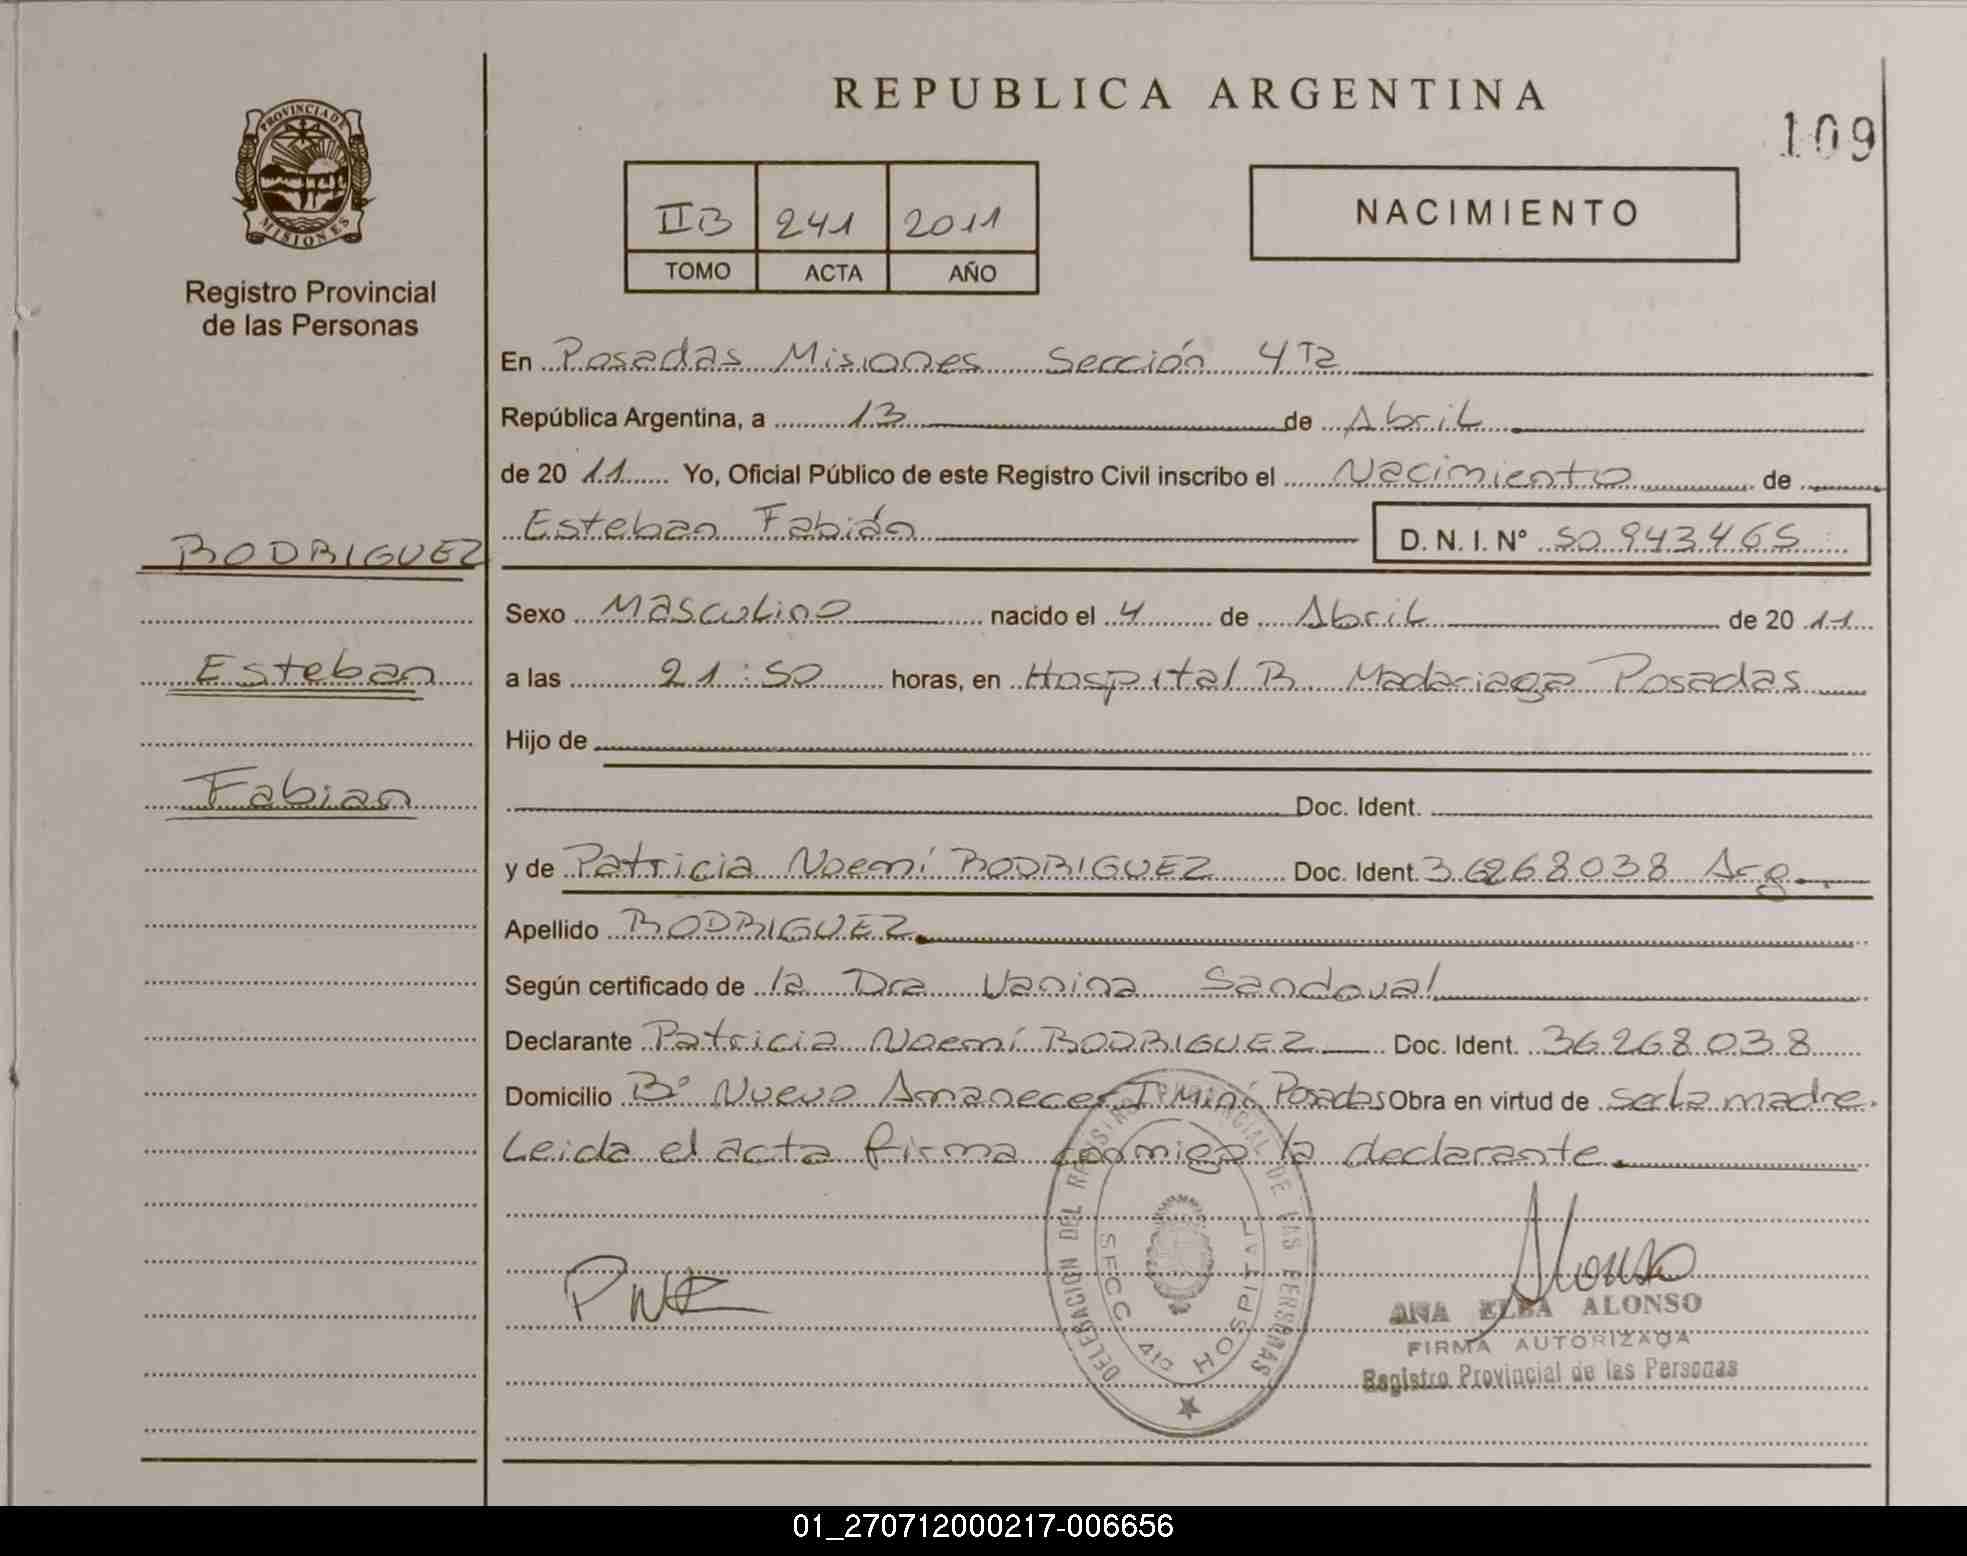 REPUBLICA ARGENTINA
109
PROVINCIA DE
MISIONES
Registro Provincial
de las Personas
IIB 241 2011
TOMO ACTA AÑO
NACIMIENTO
En Posadas Misiones Sección 4Ta
República Argentina, a 13 de Abril
de 20 11 Yo, Oficial Público de este Registro Civil inscribo el Nacimiento de
Esteban Fabián D. N. I. N° 50 943465
RODRIGUEZ
Esteban
Fabian
Sexo Masculino nacido el 4 de Abril de 20 11
a las 21:50 horas, en Hospital R. Madariaga Posadas
Hijo de
Doc. Ident.
y de Patricia Noemí RODRIGUEZ Doc. Ident. 36268038 Arg.
Apellido RODRIGUEZ
Según certificado de la Dra Vanina Sandoval
Declarante Patricia Noemí RODRIGUEZ Doc. Ident. 36268038
Domicilio B° Nuevo Amanecer I Miní Posadas Obra en virtud de ser la madre.
Leida el acta firma conmigo la declarante
DELEGACION DEL REGISTRO PROVINCIAL DE LAS PERSONAS
SECC 4ta HOSPITAL
PNR
Alonso
ANA ELBA ALONSO
FIRMA AUTORIZADA
Registro Provincial de las Personas
01_270712000217-006656